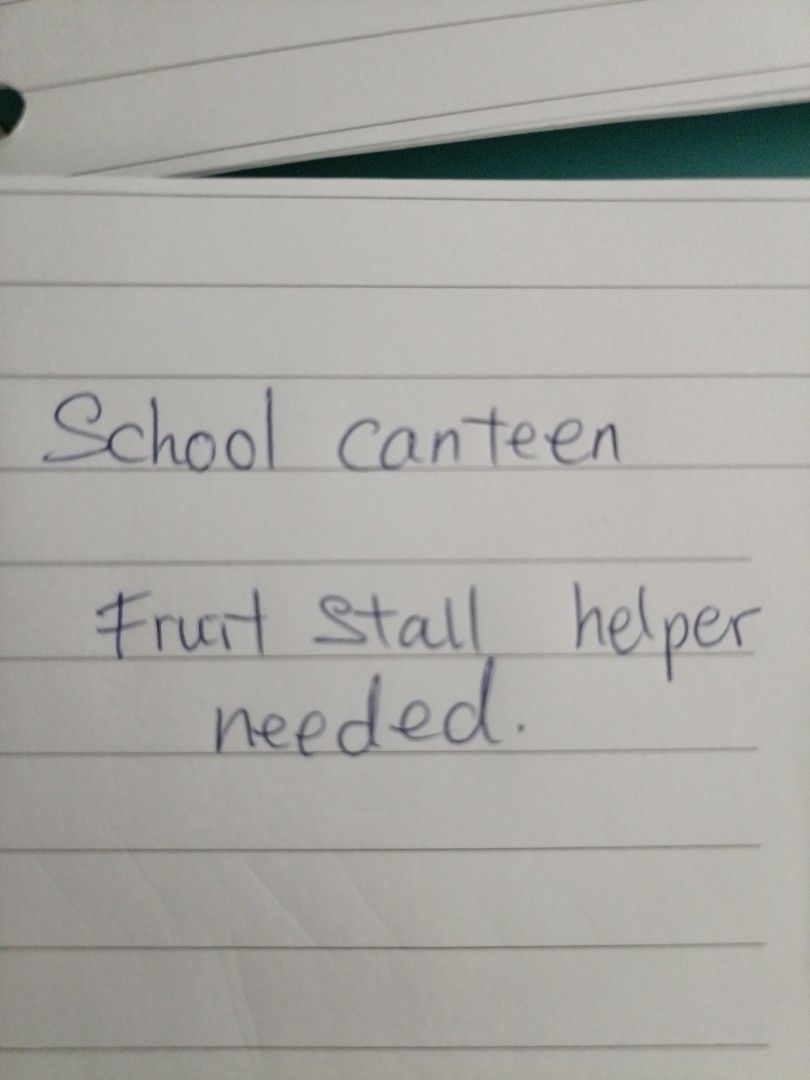 School canteen
Fruit stall helper
needed.